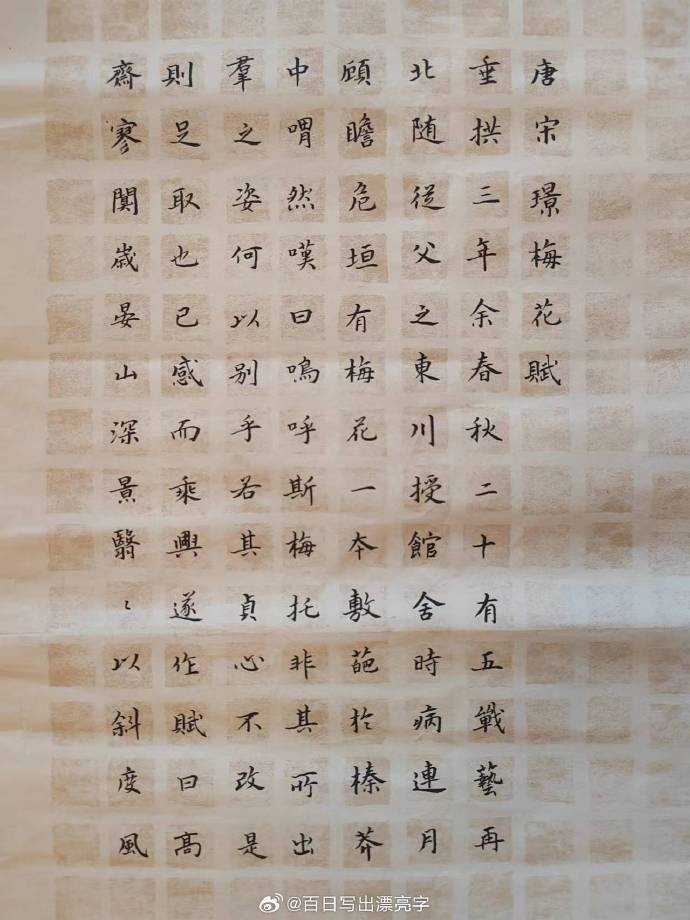 唐宋璟梅花賦
垂拱三年余春秋二十有五戰藝再
北随從父之東川授館舍時病連月
顧瞻危垣有梅花一本敷葩於榛莽
中喟然嘆曰嗚呼斯梅托非其所出
羣之姿何以别乎若其貞心不改是
則足取也已感而乘興遂作賦曰高
齋寥闃歳晏山深景翳〻以斜度風
@百日写出漂亮字